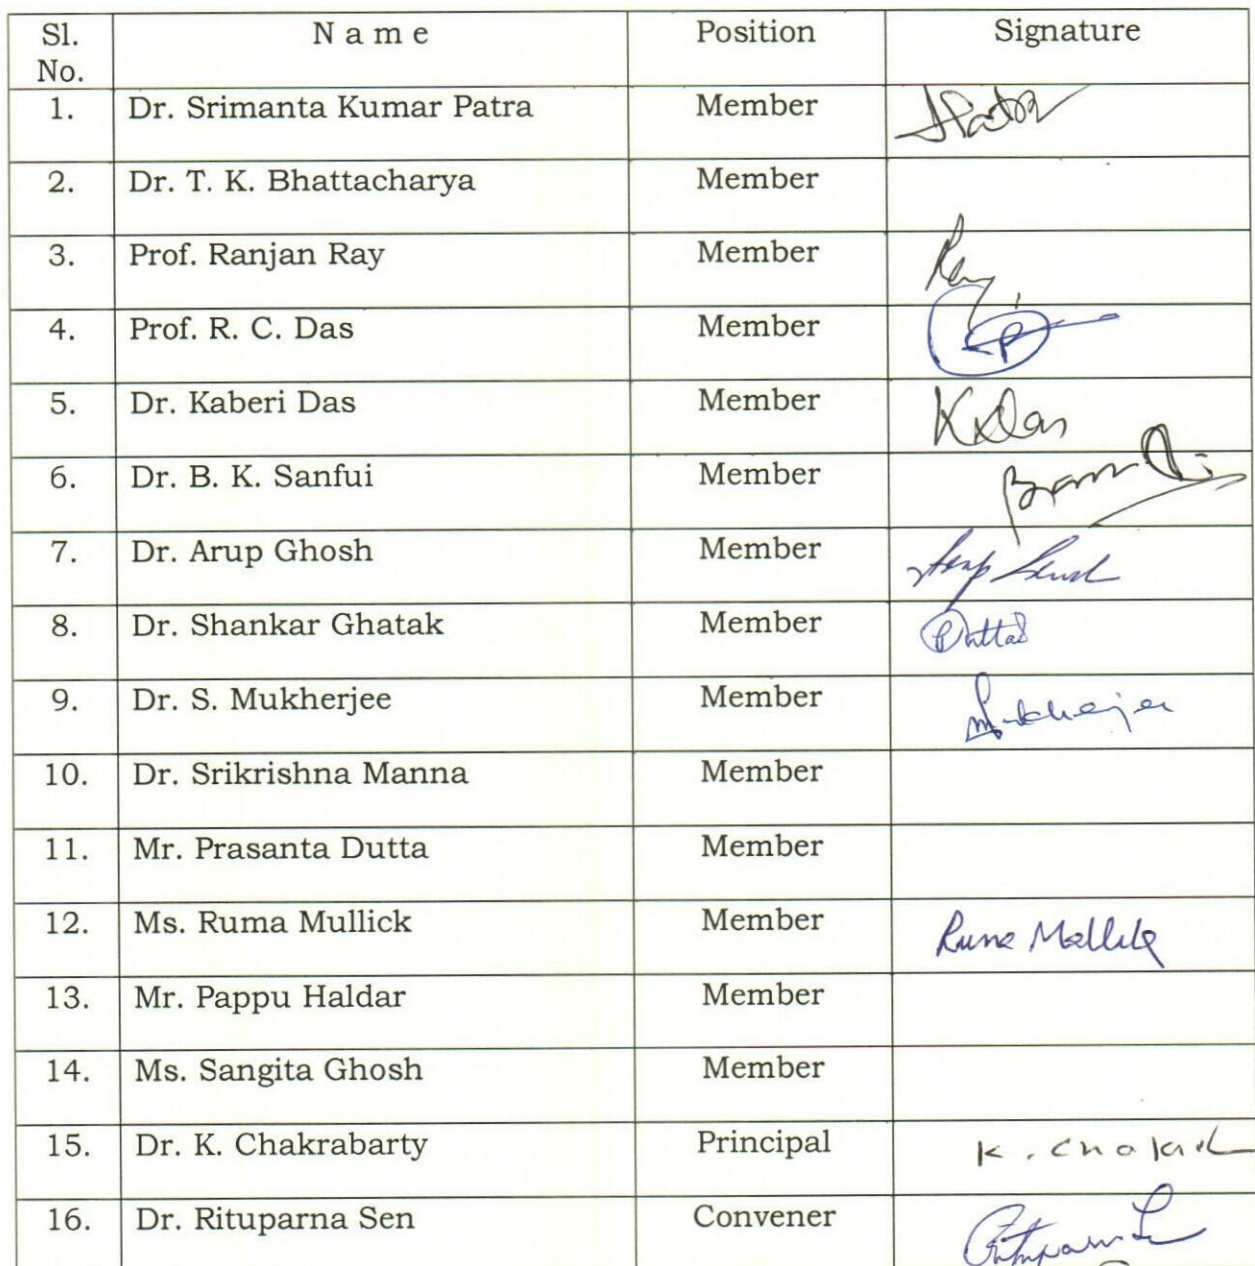 Sl. No. N a m e Position Signature
1. Dr. Srimanta Kumar Patra Member
2. Dr. T. K. Bhattacharya Member
3. Prof. Ranjan Ray Member Ray
4. Prof. R. C. Das Member
5. Dr. Kaberi Das Member KDas
6. Dr. B. K. Sanfui Member
7. Dr. Arup Ghosh Member
8. Dr. Shankar Ghatak Member
9. Dr. S. Mukherjee Member Mukherjee
10. Dr. Srikrishna Manna Member
11. Mr. Prasanta Dutta Member
12. Ms. Ruma Mullick Member Ruma Mallick
13. Mr. Pappu Haldar Member
14. Ms. Sangita Ghosh Member
15. Dr. K. Chakrabarty Principal
16. Dr. Rituparna Sen Convener